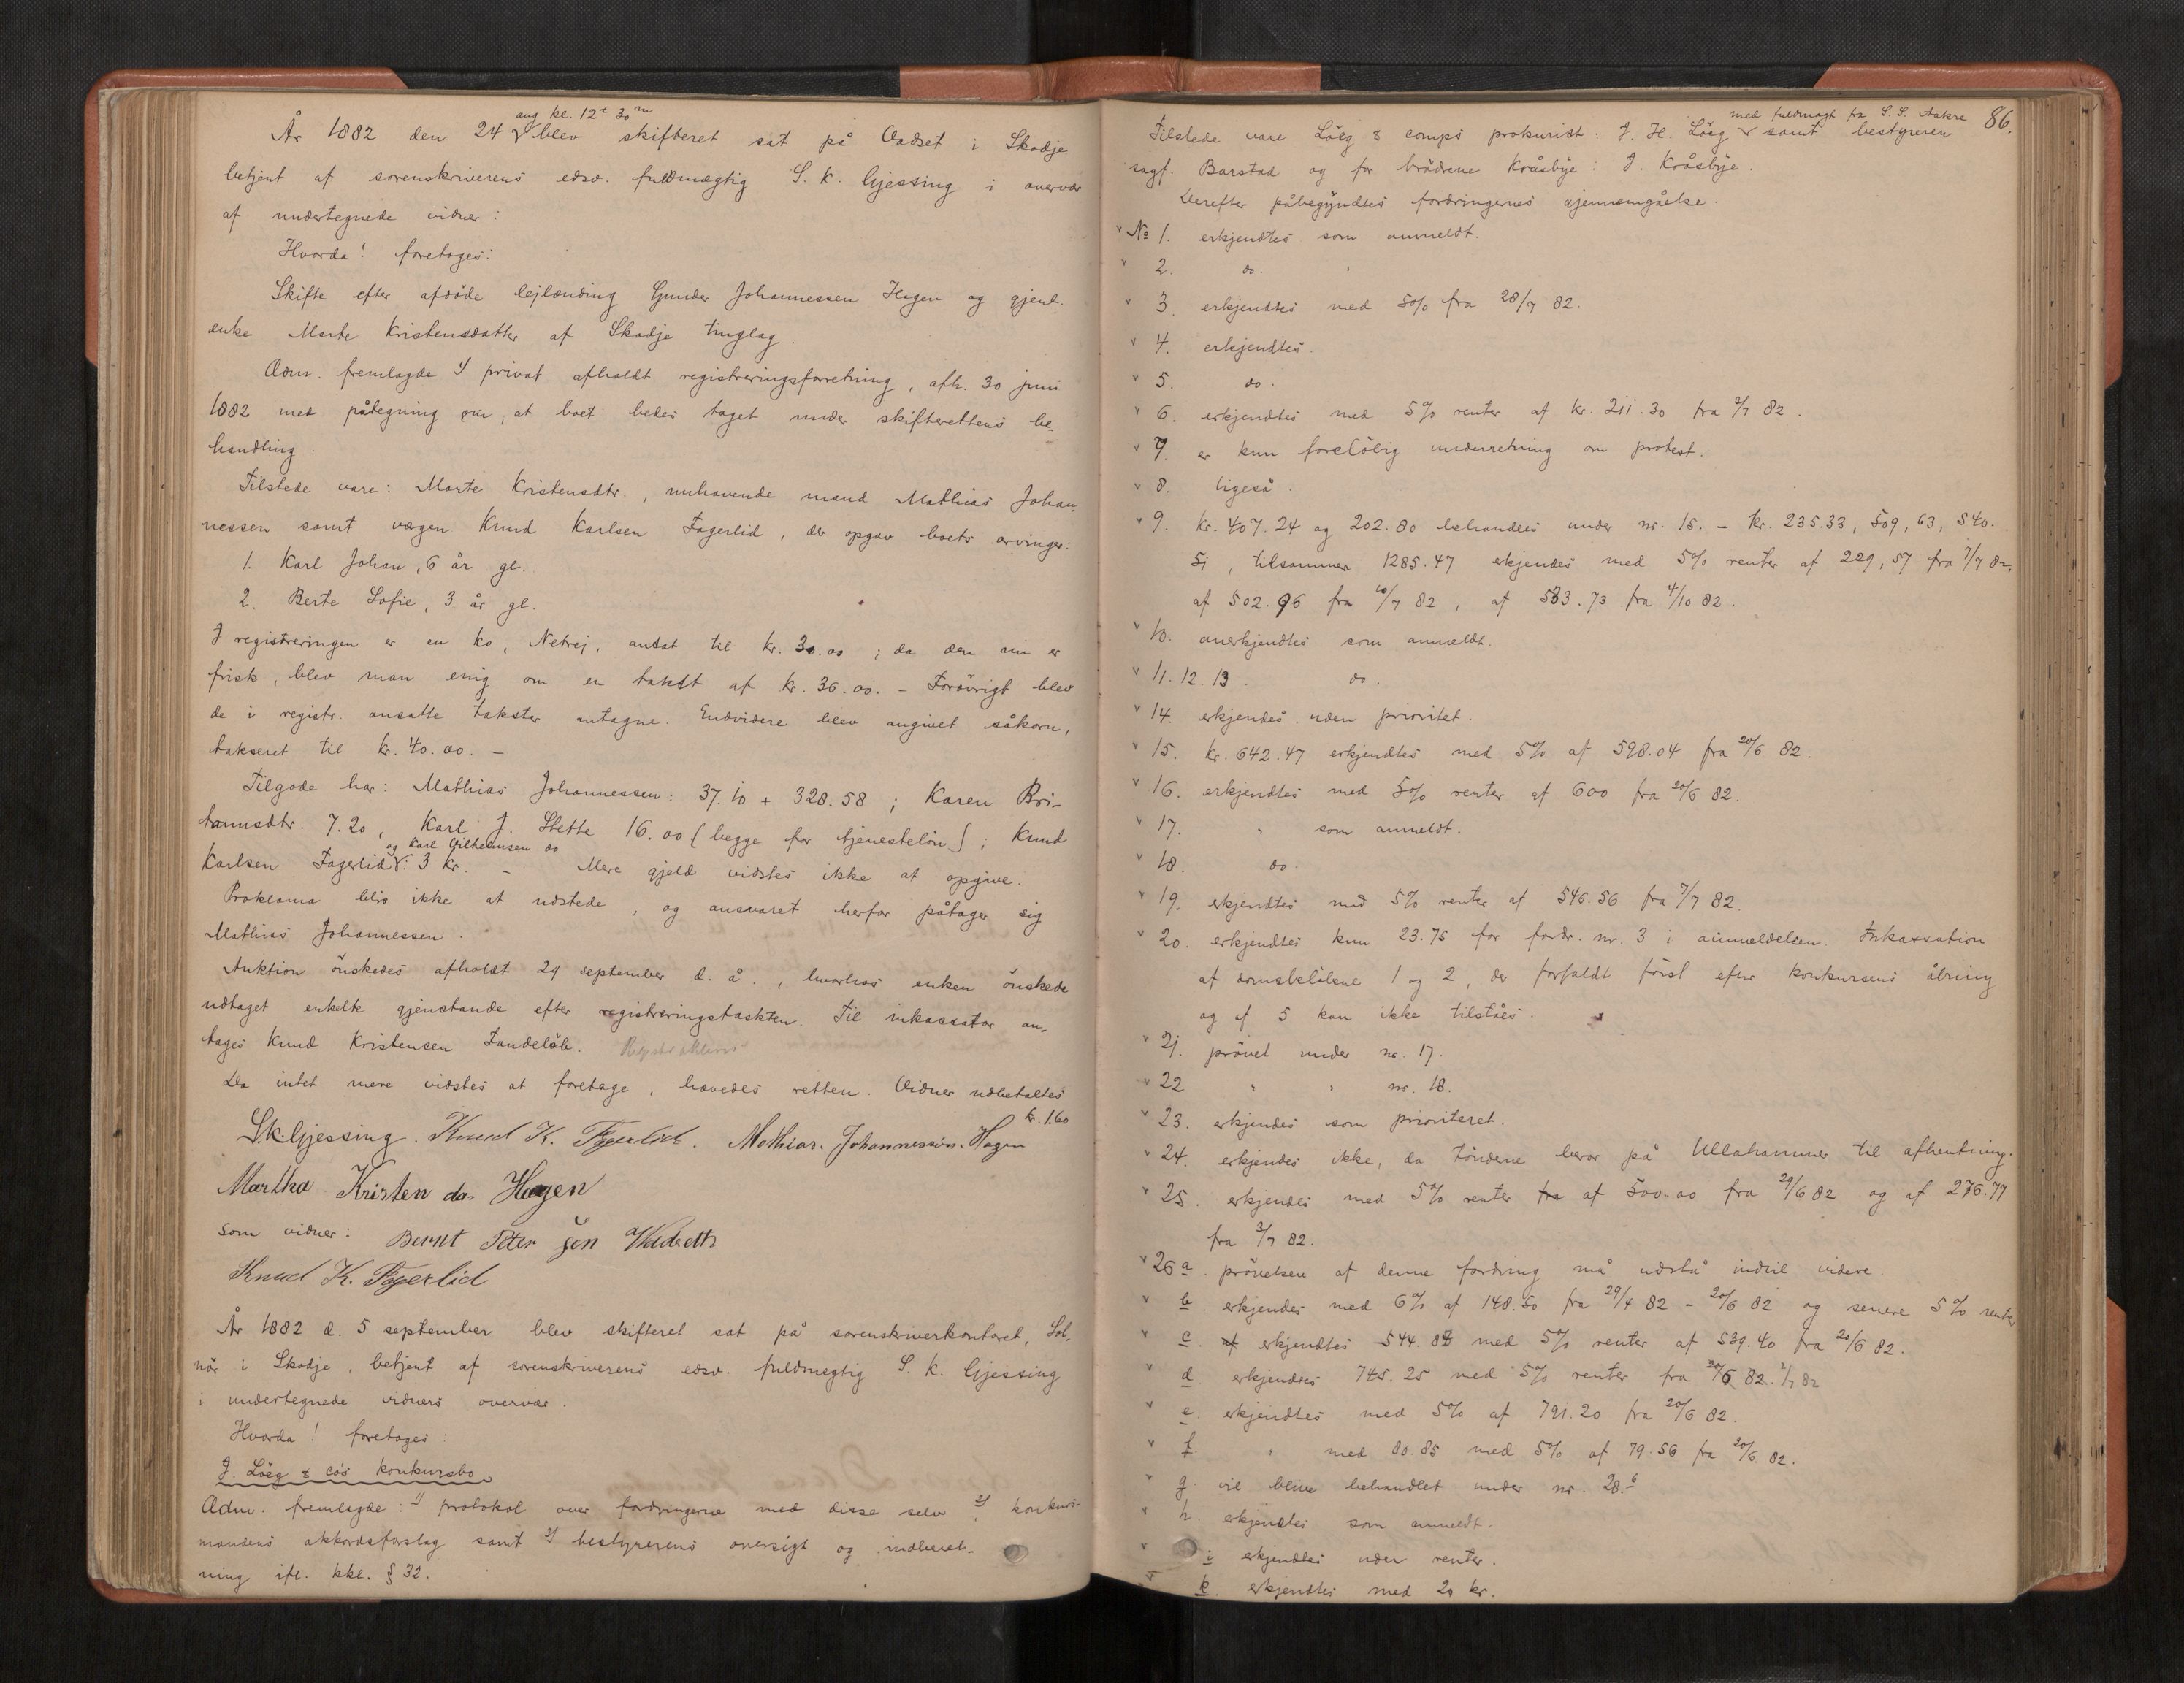 aug kl. 12t 30m
År 1882 den 24 blev skifteret sat på Vadset i Skodje
betjent af sorenskriverens edsv. fuldmægtig S. K. Gjessing i overvær
af undertegnede vidner:
Hvorda! foretoges:
Skifte efter afdøde lejlending Gunder Johannessen Hagen og gjenl.
enke Marte Kristensdatter af Skodje tinglag.
Adm. fremlagde 1) privat afholdt registreringsforretning, afh. 30 juni
1882 med påtegning om, at boet bedes taget under skifterettens be-
handling.
Tilstede vare: Marte Kristensdtr., nuhavende mand Mathias Johan-
nessen samt vægen Knud Karlsen Fagerlid, der opgav boets arvinger:
1. Karl Johan, 6 år gl.
2. Berte Sofie, 3 år gl.
I registreringen er en ko, Netrej, ansat til kr. 30.00; da den nu er
frisk, blev man enig om en takst af kr. 36.00. - Forøvrigt blev
de i registr. ansatte takster antagne. Endvidere blev angivet såkorn,
takseret til kr. 40.00. -
Tilgode har: Mathias Johannessen: 37.10 + 328.58; Karen Bri-
tannsdtr. 7.20, Karl J. Stette 16.00 (begge for tjenestelön); Knud
og Karl Vilhelmsen do
Karlsen Fagerlid: 3 kr. - Mere gjeld vidstes ikke at opgive.
Proklama blir ikke at udstede, og ansvaret herfor påtager sig
Mathias Johannessen.
Auktion önskedes afholdt 29 september d. å., hvorhos enken önskede
udtaget enkelte gjenstande efter registreringstaksten. Til inkassator an-
tages Knud Kristensen Fandeløb.
Da intet mere vidstes at foretage, hævedes retten. Vidner udbetaltes
kr. 1.60
S.K. Gjessing. Knud K. Fagerlid. Mathias Johannessen Hagen
Martha Kristen da Hagen
som vidner: Bernt Peter Jen
Knud K. Fagerlid
År 1882 d. 5 september blev skifteret sat på sorenskriverkontoret, Sol-
nör i Skodje, betjent af sorenskriverens edsv. fuldmegtig S. K. Gjessing
i undertegnede vidners overvær.
Hvorda! foretoges:
J. Löeg & co's konkursbo
Adm. fremlagde: 1) protokol over fordringerne med disse selv 2) konkurs-
mandens akkordsforslag samt 3) bestyrerens oversigt og indberet-
ning ifl. kkl. § 32.
86.
med fuldmagt fra S. S. Aakre
Tilstede vare Löeg & comps prokurist: J. H. Löeg samt bestyreren
sagf. Barstad og for brödrene Kråsbye: J. Kråsbye.
Derefter påbegyndtes fordringernes gjennemgåelse.
No 1. erkjendtes som anmeldt.
2. do.
3. erkjendtes med 5% fra 28/7 82.
4. erkjendtes.
5. do.
6. erkjendtes med 5% renter af kr. 211.30 fra 3/7 82.
7. er kun forelöbig underretning om protest.
8. ligeså.
9. kr. 407.24 og 202.80 behandles under nr. 15. - kr. 235.33, 509,63, 540.
51, tilsammen 1285.47 erkjendes med 5% renter af 229,57 fra 7/7 82,
af 502.96 fra 10/7 82, af 533.73 fra 4/10 82.
10. anerkjendtes som anmeldt.
11. 12. 13. do.
14. erkjendes uden prioritet.
15. kr. 642.47 erkjendtes med 5% af 598.04 fra 20/6 82.
16. erkjendtes med 5% renter af 600 fra 20/6 82.
17. " som anmeldt.
18. do.
19. erkjendtes med 5% renter af 546.56 fra 7/7 82.
20. erkjendtes kun 23.75 for fordr. nr. 3 i anmeldelsen. Inkassation
af domsbelöbene 1 og 2, der forfaldt först efter konkursens åbning
og af 5 kan ikke tilståes.
21. prövet under nr. 17.
22 " " nr. 18.
23. erkjendes som prioriteret.
24. erkjendes ikke, da töndene beror på Ullahammer til afhentning.
25. erkjendes med 5% renter fra af 500.00 fra 29/6 82 og af 276.77
fra 3/7 82.
26 a. prövelsen af denne fordring må udstå indtil videre.
b. erkjendes med 6% af 148.50 fra 29/4 82 - 20/6 82 og senere 5% renter
c. erkjendtes 544.82 med 5% renter af 539.40 fra 20/6 82.
d. erkjendtes 745.25 med 5% renter fra 20/6 82. 2/7 82
e. erkjendtes med 5% af 791.20 fra 20/6 82.
f. " med 80.85 med 5% af 79.56 fra 20/6 82.
g. vil blive behandlet under nr. 28.b
h. erkjendtes som anmeldt.
i. erkjendtes uden renter.
k. erkjendtes med 20 kr.